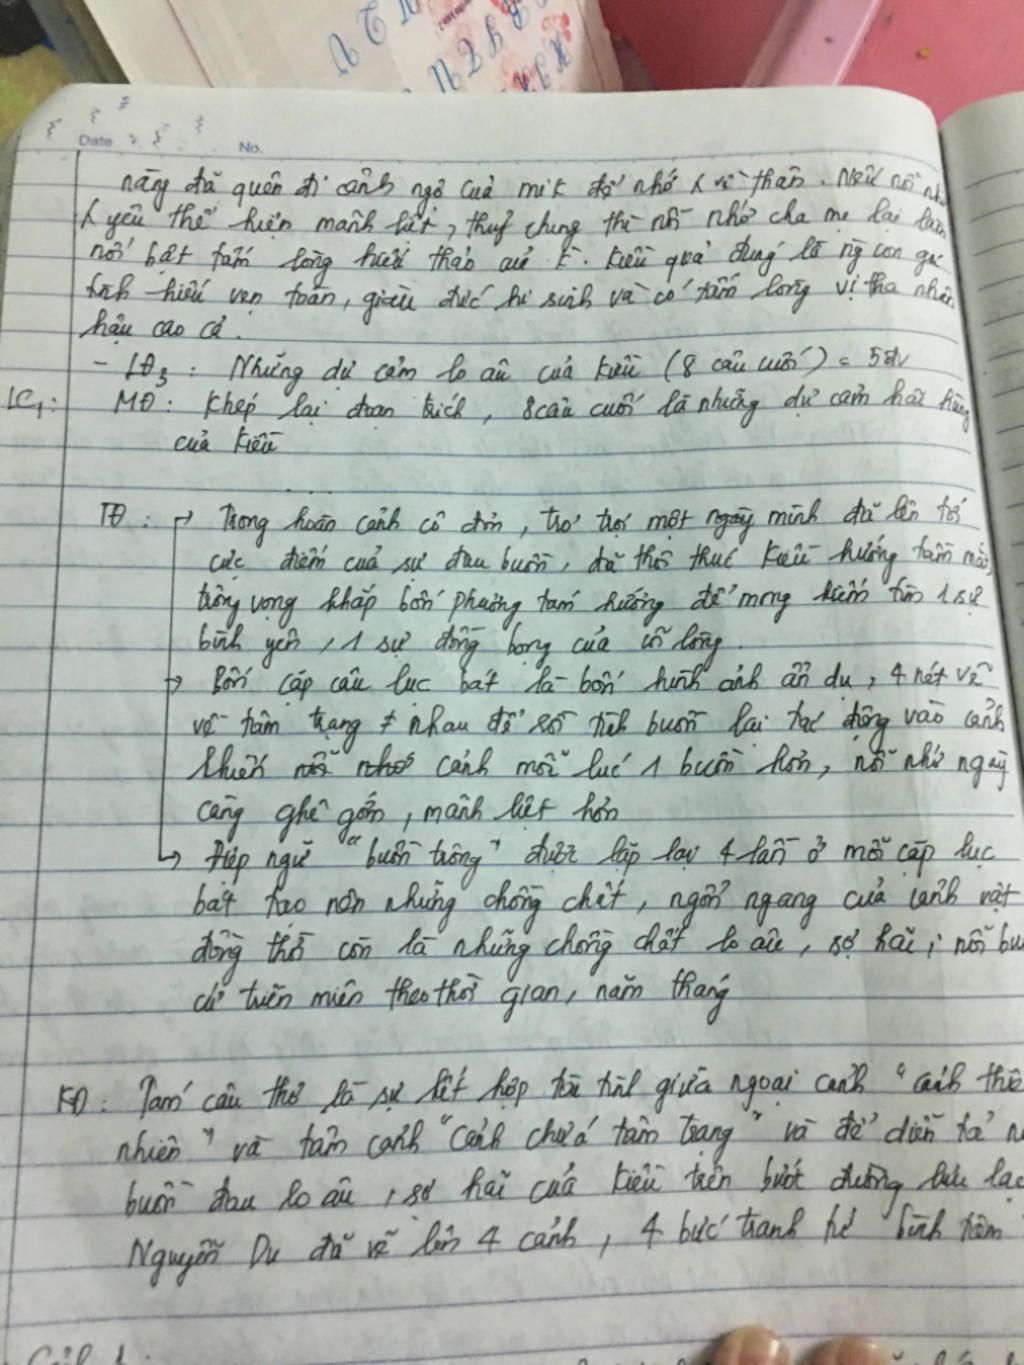 Date No.
nàng đã quên đi cảnh ngộ của mik để nhớ về thân. Nếu nỗi
yêu thể hiện mãnh liệt, thuỷ chung thì nỗi nhớ cha mẹ lại làm
nổi bật tấm lòng hiếu thảo của K. Kiều quả đúng là ng con gái
tình hiếu vẹn toàn, giàu đức hi sinh và có tấm lòng vị tha nhân
hậu cao cả.
- LĐ3 : Những dự cảm lo âu của Kiều (8 câu cuối) = 5đv
LC1: MĐ: Khép lại đoạn trích, 8 câu cuối là những dự cảm hãi hùng
của Kiều
TĐ : → Trong hoàn cảnh cô đơn, trơ trọi một mình đã lên tới
cực điểm của sự đau buồn, đã thôi thúc Kiều hướng tầm mắt
trông vọng khắp bốn phương tám hướng để mong kiếm tìm 1 sự
bình yên, 1 sự đồng vọng của cõi lòng.
→ Bốn cặp câu lục bát là bốn hình ảnh ẩn dụ, 4 nét vẽ
về tâm trạng ≠ nhau để rồi tình buồn lại tác động vào cảnh
khiến cảnh mỗi lúc 1 buồn hơn, nỗi nhớ ngày
càng ghê gớm, mãnh liệt hơn
→ Điệp ngữ "buồn trông" được lặp lại 4 lần ở mỗi cặp lục
bát tạo nên những chồng chất, ngổn ngang của cảnh vật
đồng thời còn là những chồng chất lo âu, sợ hãi, nỗi
cứ triền miên theo thời gian, năm tháng
KĐ: Tám câu thơ là sự kết hợp tài tình giữa ngoại cảnh "cảnh thiê
nhiên" và tâm cảnh "cảnh chứa tâm trạng" và để diễn tả
buồn đau lo âu, sợ hãi của Kiều trên bướt đường lưu lạc
Nguyễn Du đã vẽ lên 4 cảnh, 4 bức tranh tứ bình